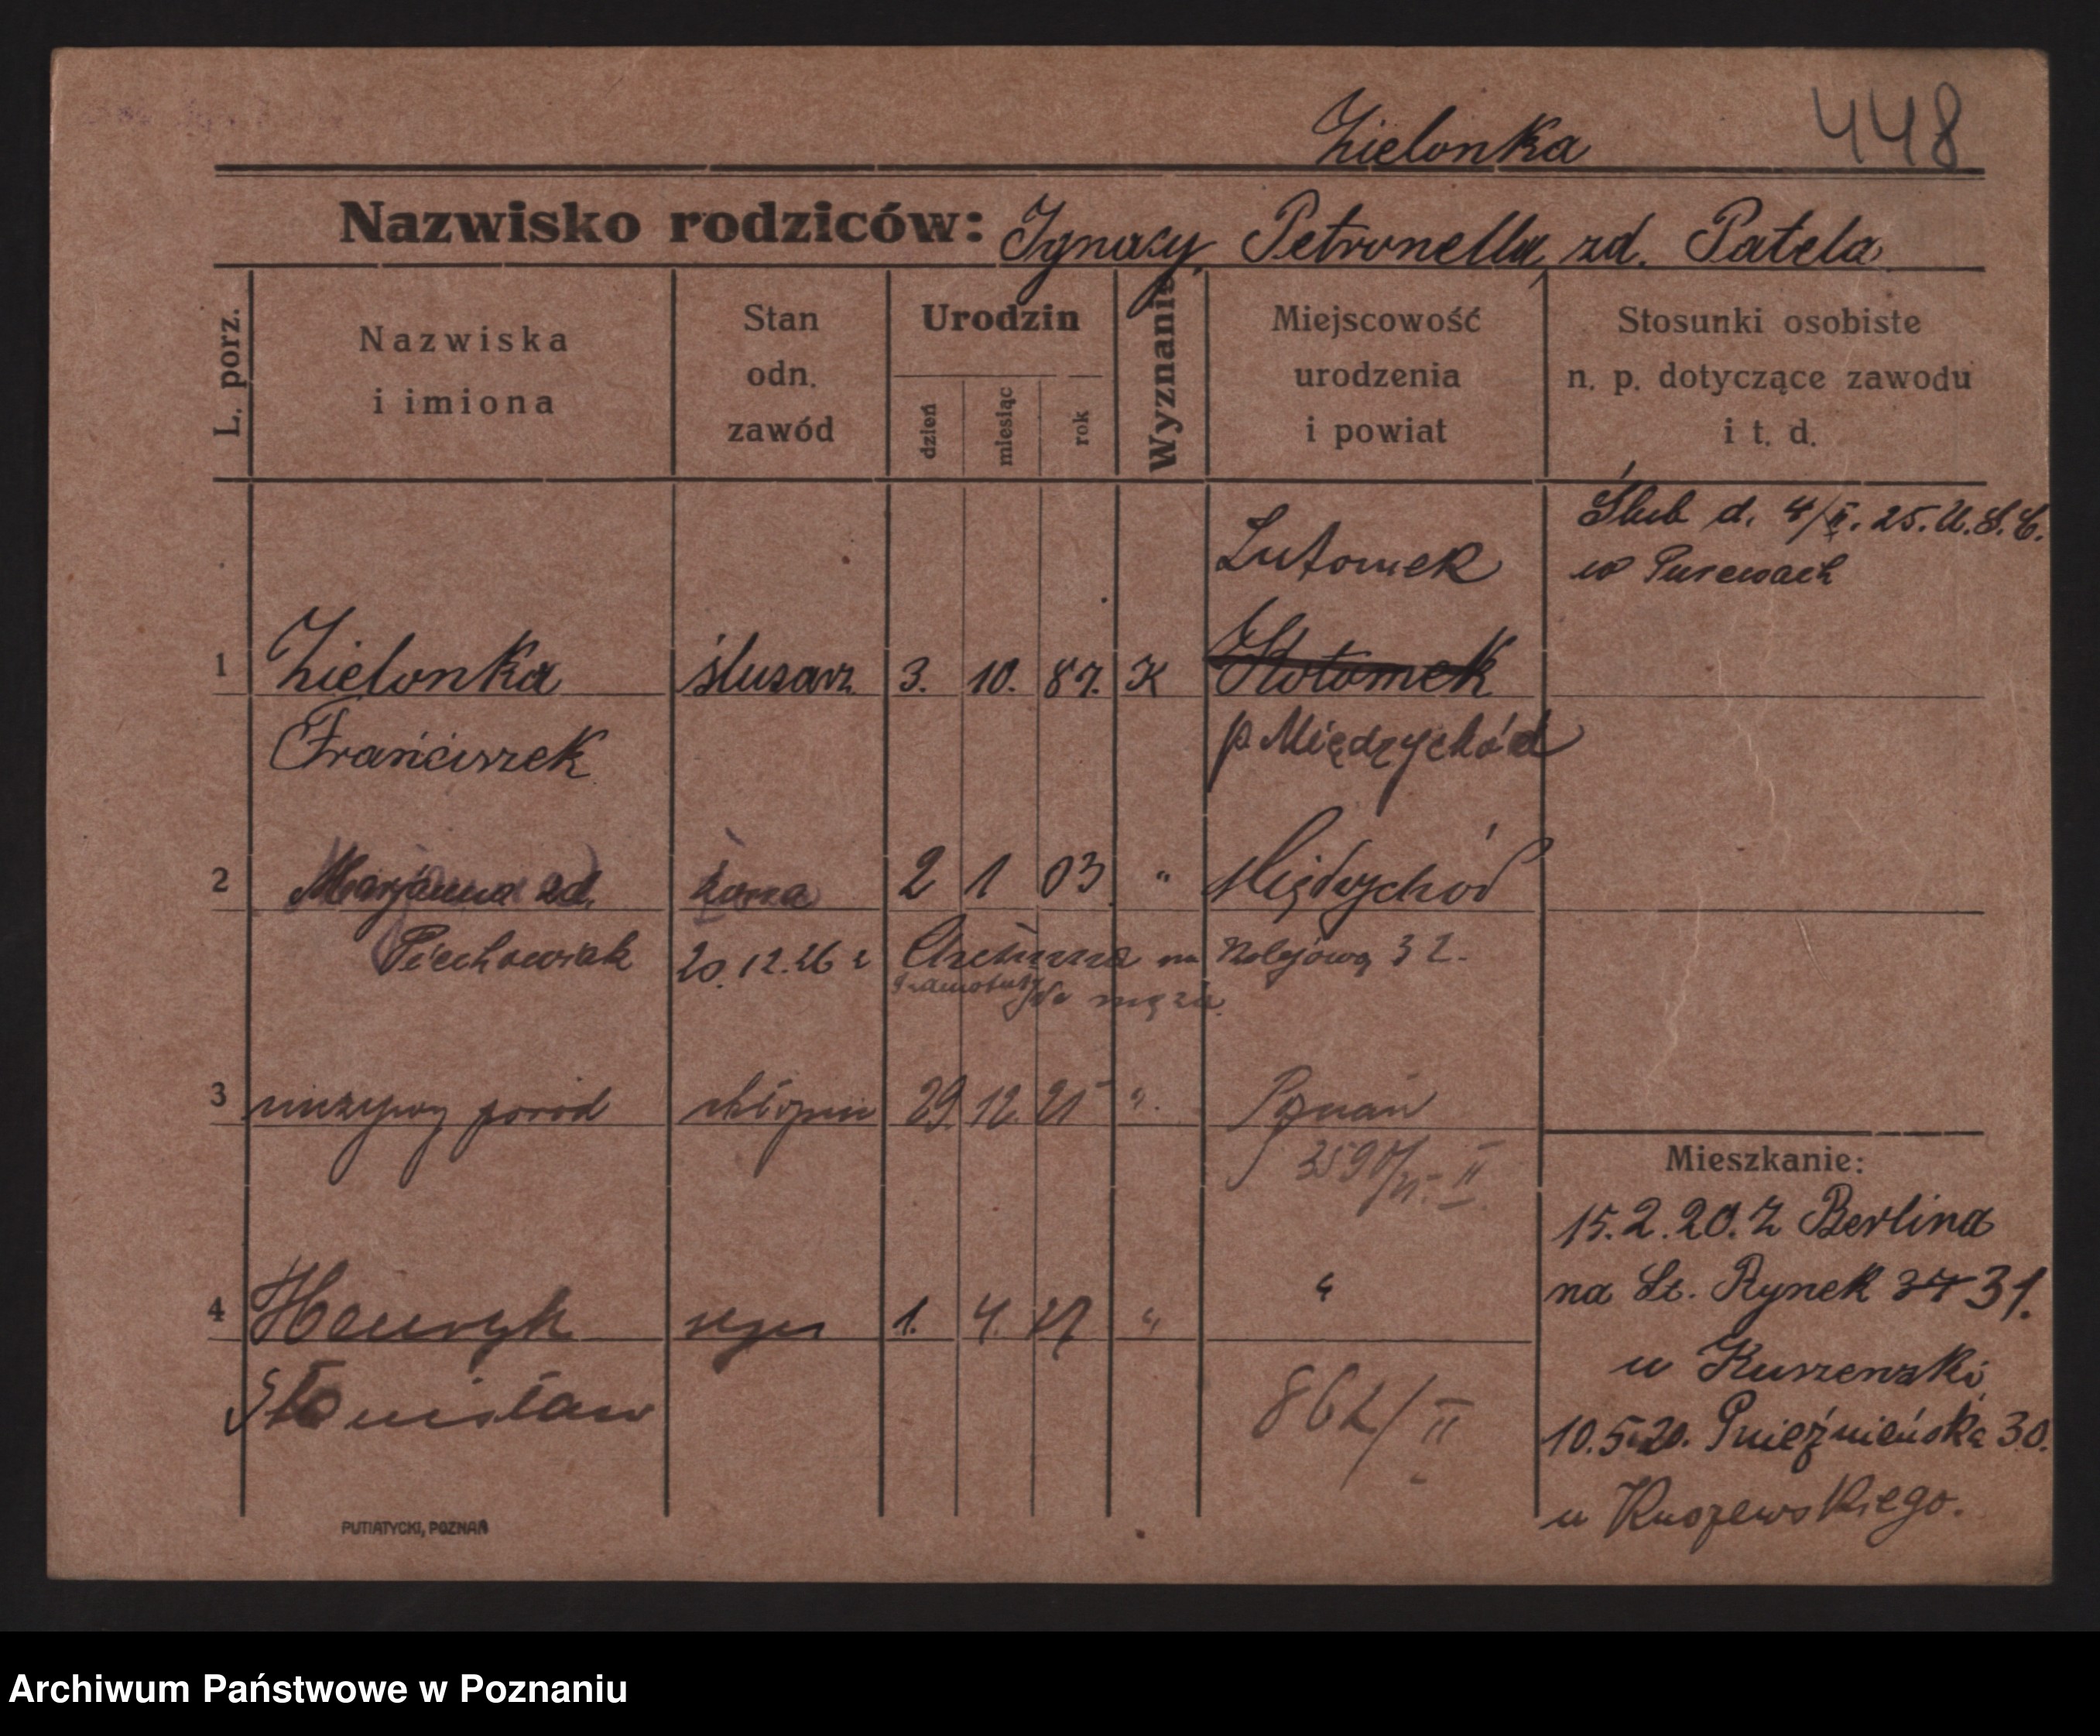 Zielonka 448
Nazwisko rodziców: Ignacy, Petronella, zd. Patela
L. porz.
Nazwiska
i imiona
Stan
odn.
zawód
Urodzin
dzień
miesiąc
rok
Wyznanie
Miejscowość
urodzenia
i powiat
Stosunki osobiste
n. p. dotyczące zawodu
i t. d.
Ślub d. 4/II. 25. U.S.C.
w
Lutomek
1 Zielonka ślusarz 3. 10. 87. K
Franciszek p. Międzychód
2 Marjanna zd. żona 2 1 03 " Międzychód
Piechowiak 20.12.26 z na Kolejową 32.
do męża
3 nieżywy poród chłopiec 29. 12. 25 " Poznań
3590/25 II
Mieszkanie:
15.2.20. z Berlina
na St. Rynek 37 31.
4 Henryk syn 1. 4. 27 " "
u
Stanisław 862/II
10.5.20. Gnieźnieńska 30.
u
PUTIATYCKI, POZNAŃ
Archiwum Państwowe w Poznaniu